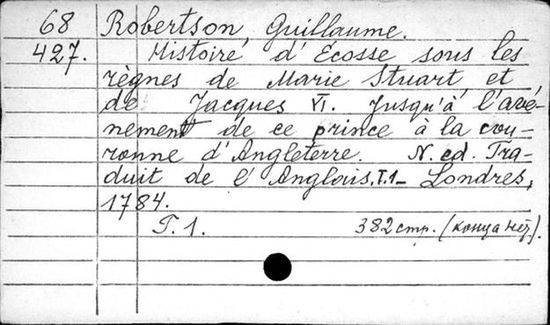 68 Robertson, Guillaume.
427. Histoire d'Ecosse sous les
règnes de Marie Stuart, et
de Jacques VI. Jusqu'à l'avé-
nement de ce prince à la cou-
ronne d'Angleterre. N. ed. Tra-
duit de l'Anglois. T.1– Londres,
1784.
T. 1. 382 стр. (конца нет).